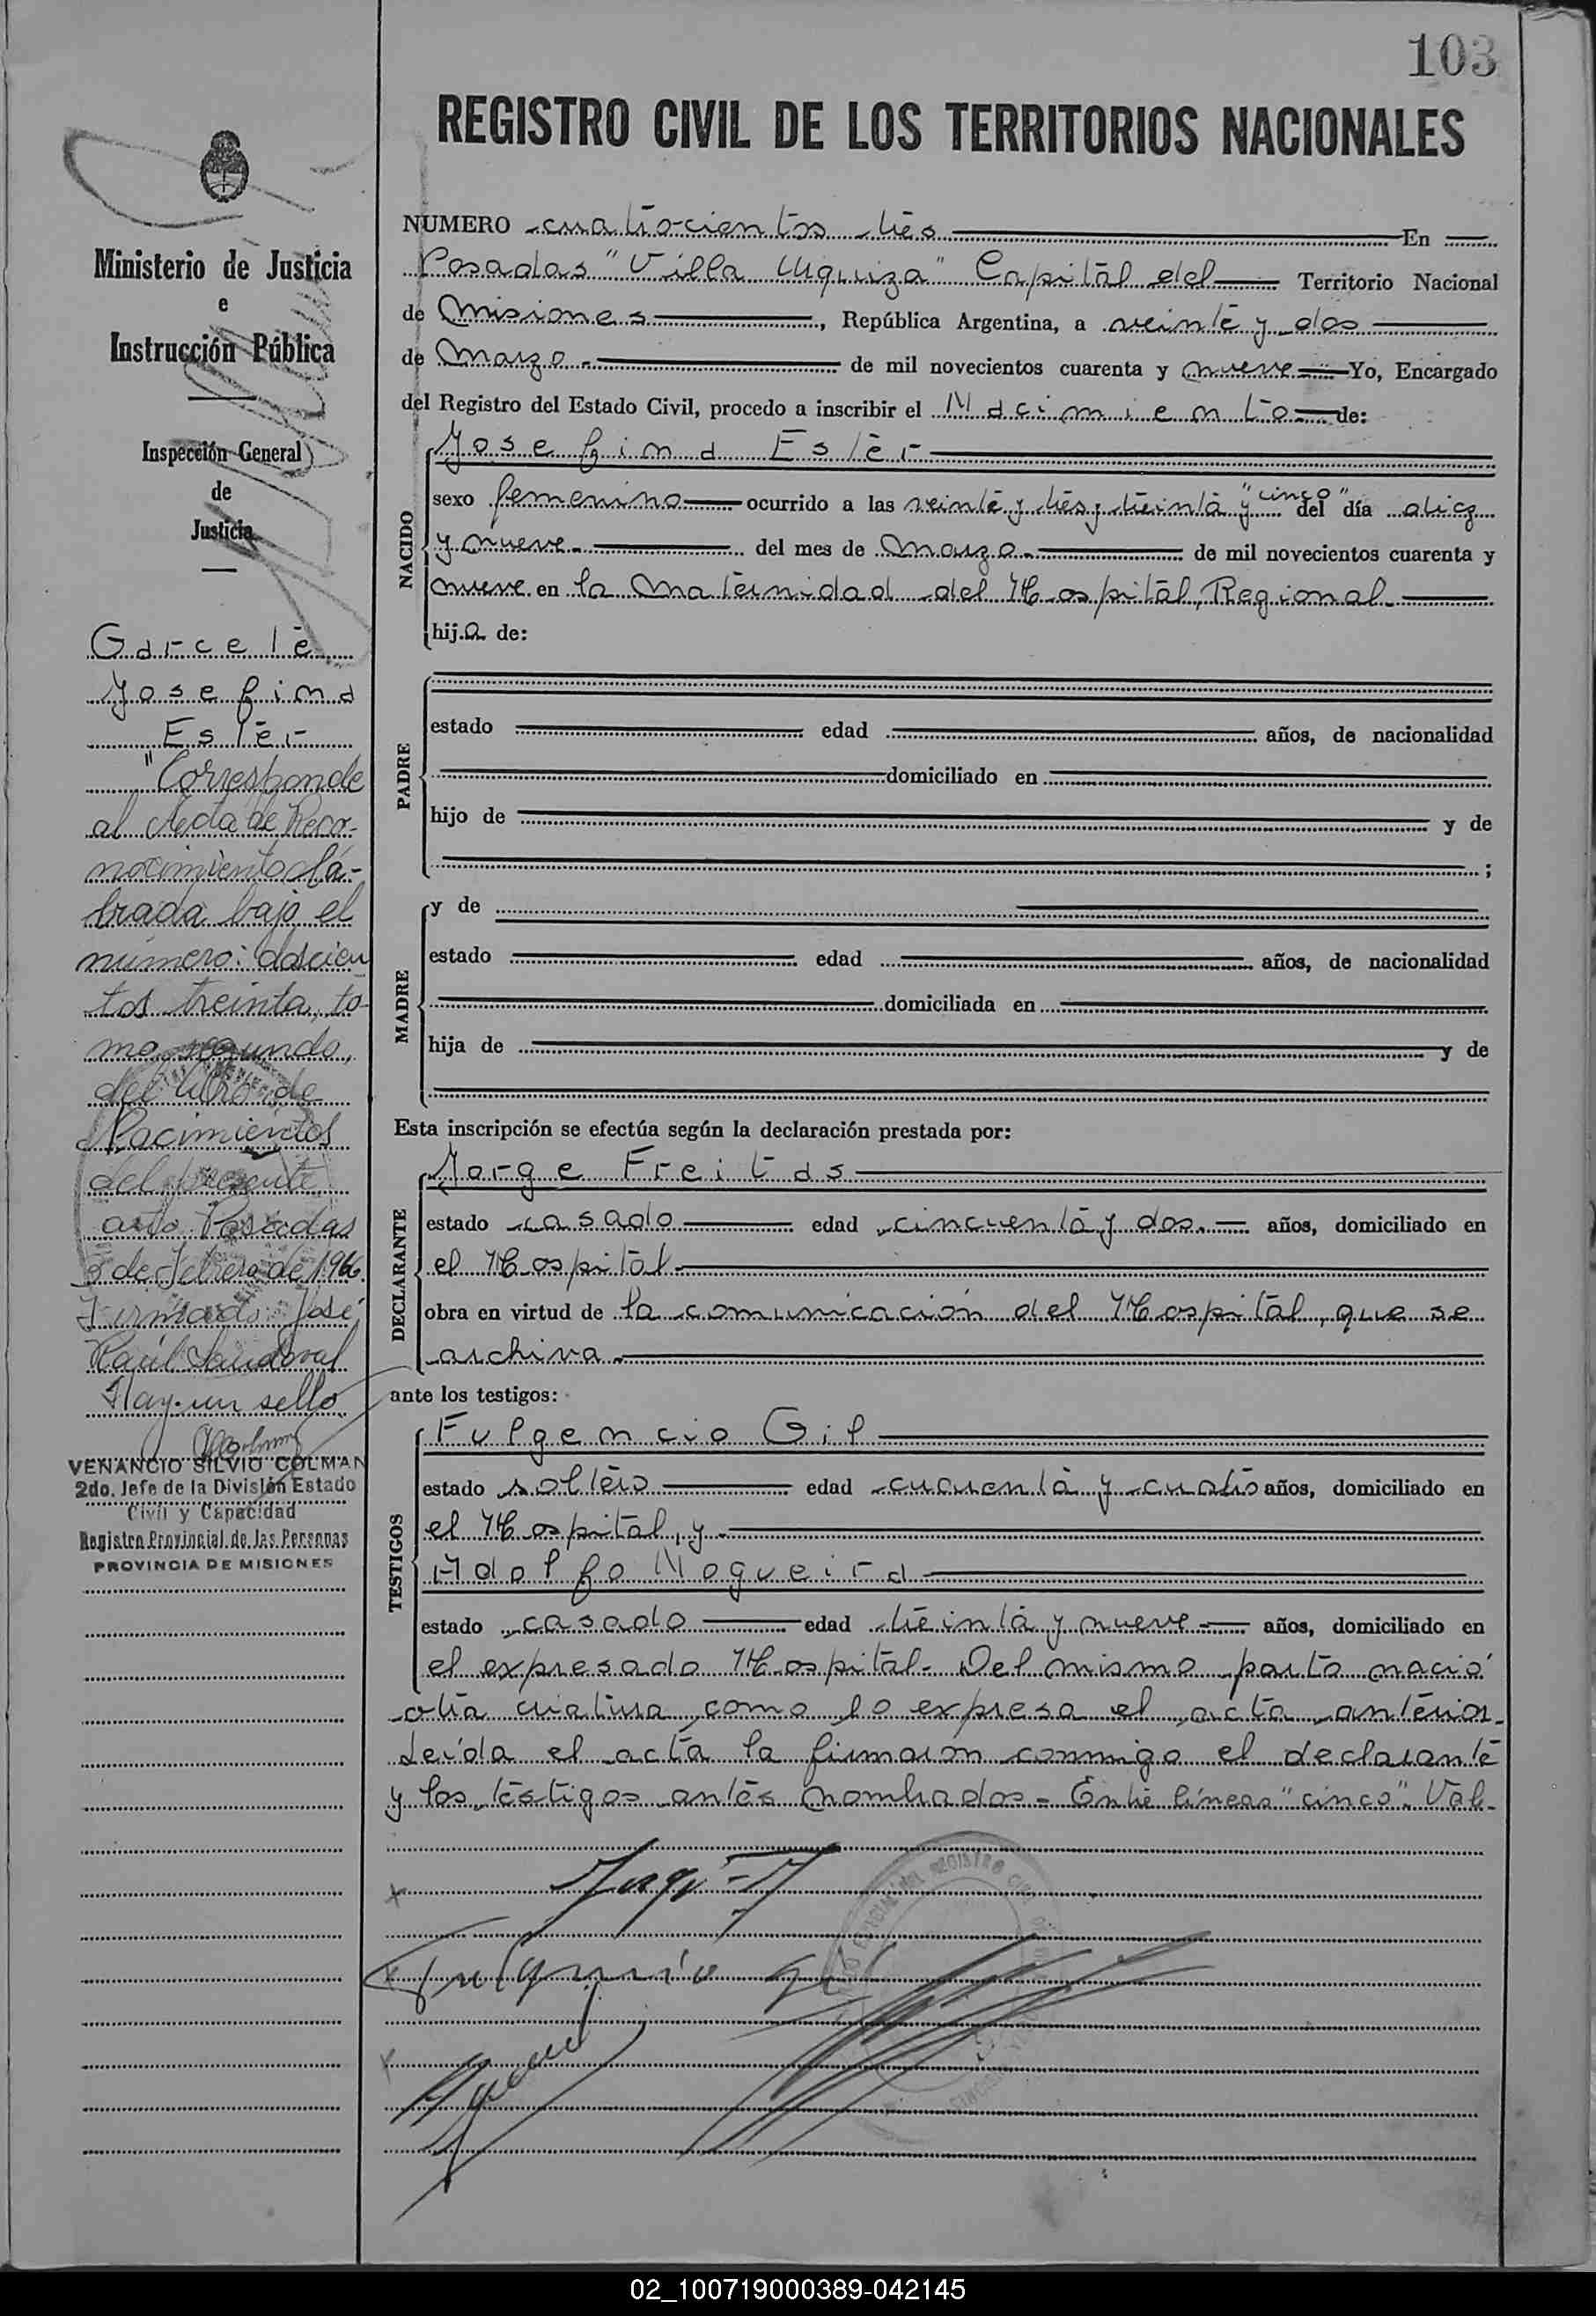 103
REGISTRO CIVIL DE LOS TERRITORIOS NACIONALES
Ministerio de Justicia
e
Instrucción Pública
Inspección General
de
Justicia
Garcete
Josefina
Ester
"Corresponde
al Acta de Reco-
nocimiento la-
brada bajo el
número: doscien
tos treinta, to-
mo segundo,
del libro de
Nacimientos
del presente
año Posadas
3 de Febrero de 1966
Firmado: José
Raúl Sandoval
Hay un sello
VENANCIO SILVIO COLMAN
2do. Jefe de la División Estado
Civil y Capacidad
Registro Provincial de las Personas
PROVINCIA DE MISIONES
NUMERO cuatrocientos tres En
Posadas "Villa Urquiza" Capital del Territorio Nacional
de Misiones, República Argentina, a veinte y dos
de Marzo.- de mil novecientos cuarenta y nueve Yo, Encargado
del Registro del Estado Civil, procedo a inscribir el Nacimiento de:
NACIDO
Josefina Ester
sexo femenino ocurrido a las veinte y tres y treinta y "cinco" del día diez
y nueve.- del mes de Marzo.- de mil novecientos cuarenta y
nueve en la Maternidad del Hospital Regional.-
hija de:
PADRE
estado edad años, de nacionalidad
domiciliado en
hijo de y de
;
MADRE
y de
estado edad años, de nacionalidad
domiciliada en
hija de y de
Esta inscripción se efectúa según la declaración prestada por:
DECLARANTE
Jorge Freitas
estado casado edad cincuenta y dos.- años, domiciliado en
el Hospital.-
obra en virtud de la comunicación del Hospital, que se
archiva.-
ante los testigos:
TESTIGOS
Fulgencio Gil
estado soltero edad cuarenta y cuatro años, domiciliado en
el Hospital, y.-
Adolfo Nogueira
estado casado edad treinta y nueve.- años, domiciliado en
el expresado Hospital.- Del mismo parto nació
otra criatura, como lo expresa el acta anterior.
Leída el acta la firmaron conmigo el declarante
y los testigos antes nombrados.- Entre líneas "cinco". Vale.
Fulgencio Gil
02_100719000389-042145